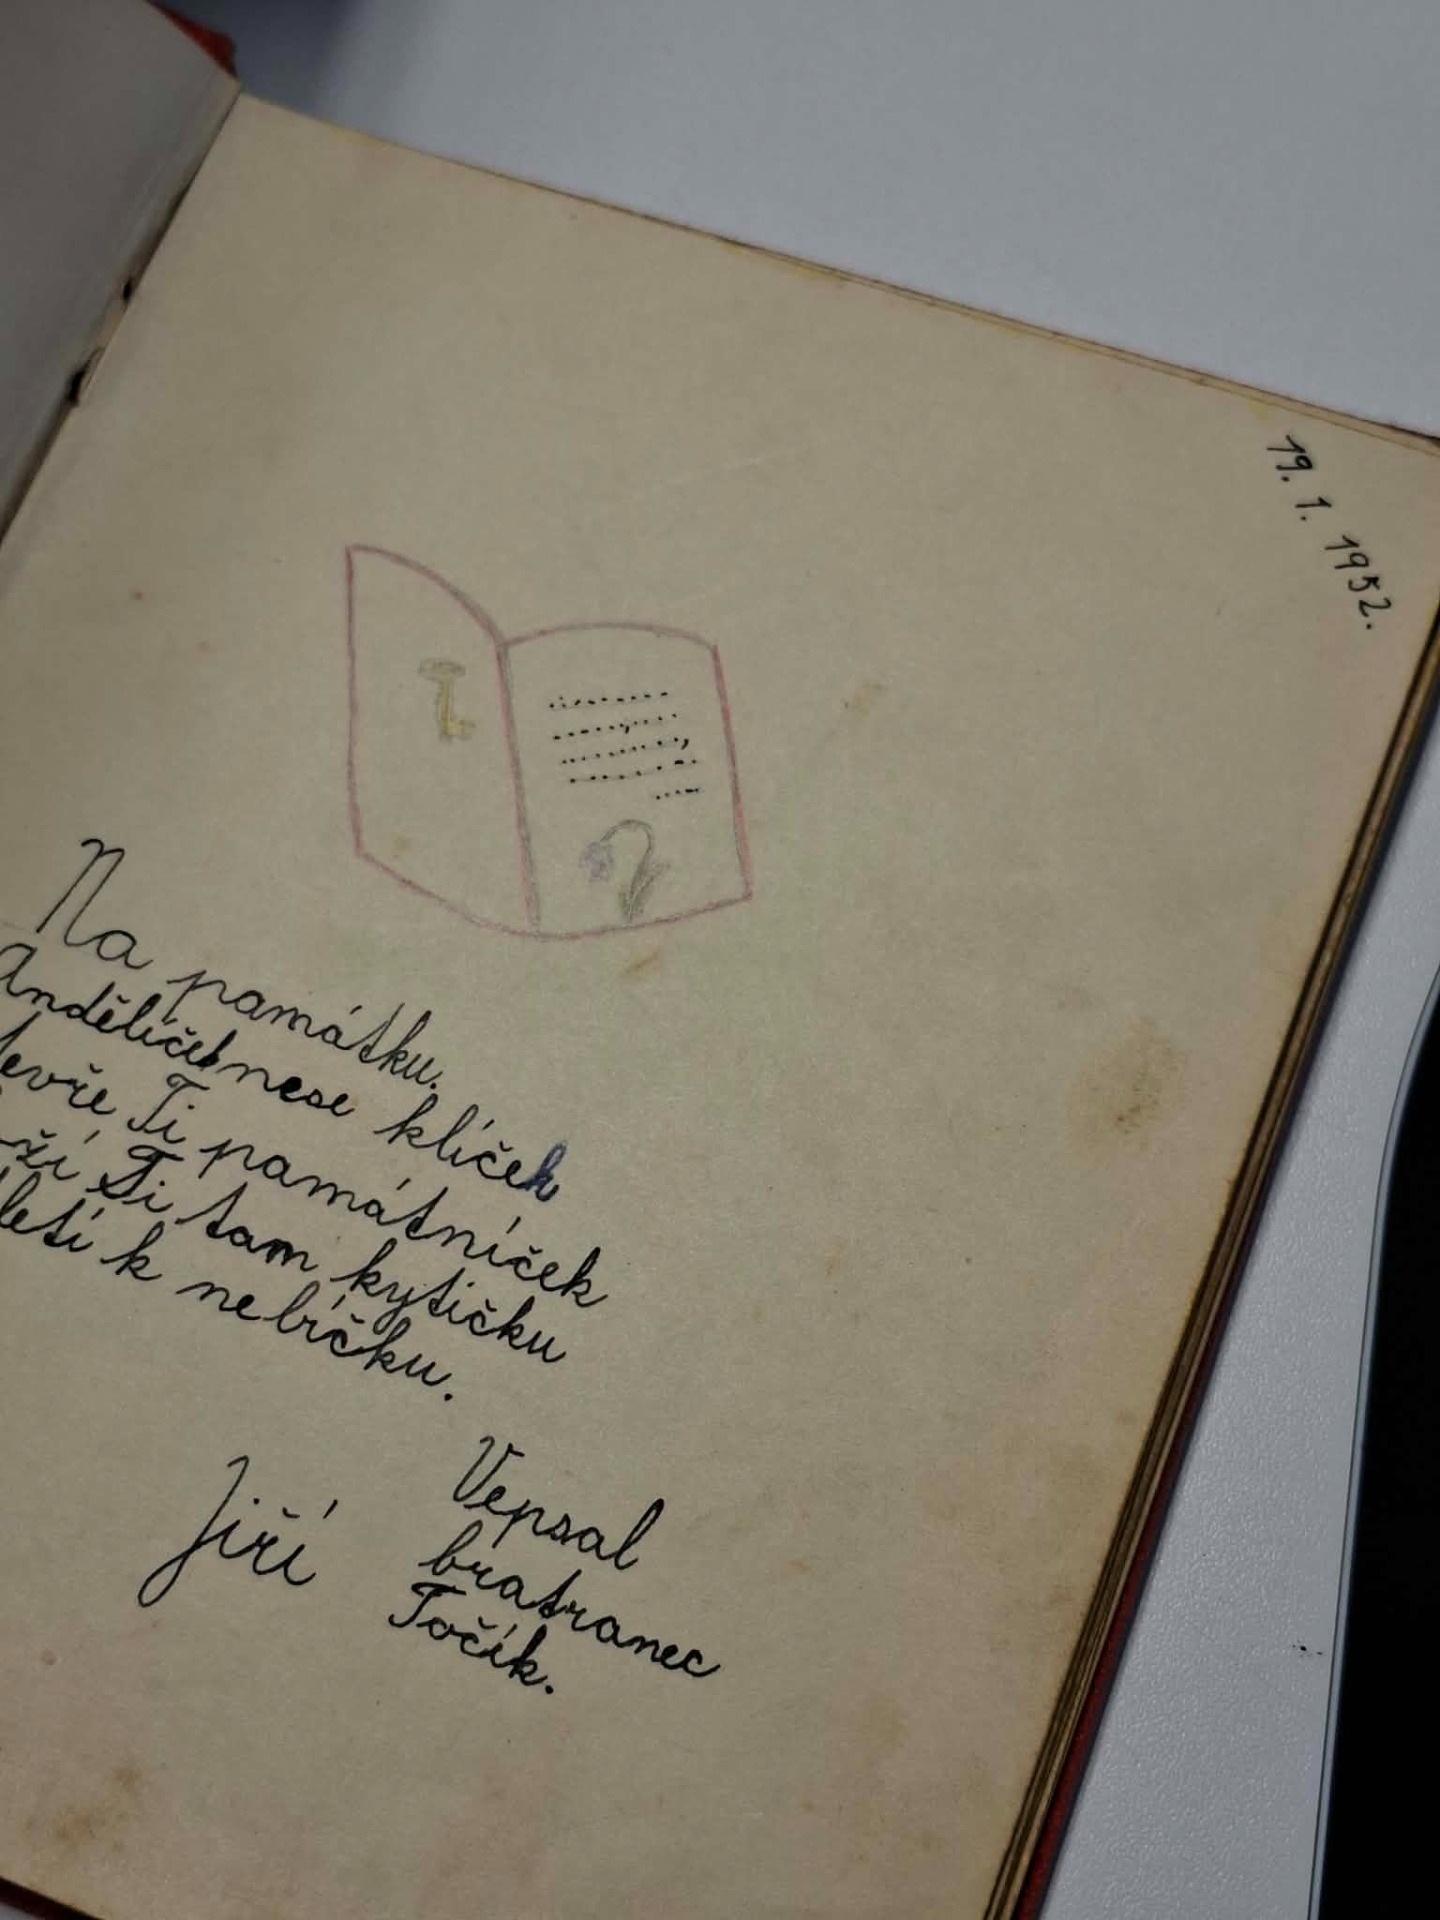 19. 1. 1952.
Na památku.
Andělíček nese klíček
evře Ti památníček
ží Ti tam kytičku
letí k nebíčku.
Jiří
Vepsal
bratranec
Točík.